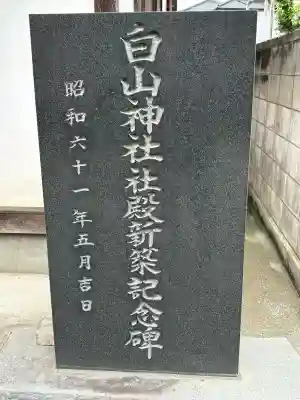 白山神社社殿新築記念碑
昭和六十一年五月吉日